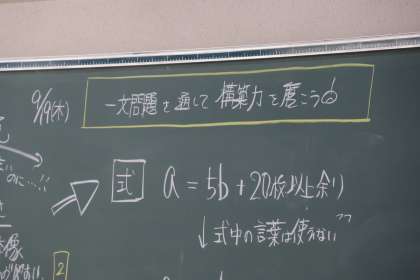 9/9(木)
一文問題を通して構築力を磨こう
のに…!!
式 a = 5b + 20枚以上余り
↓式中の言葉は使えない
像
2